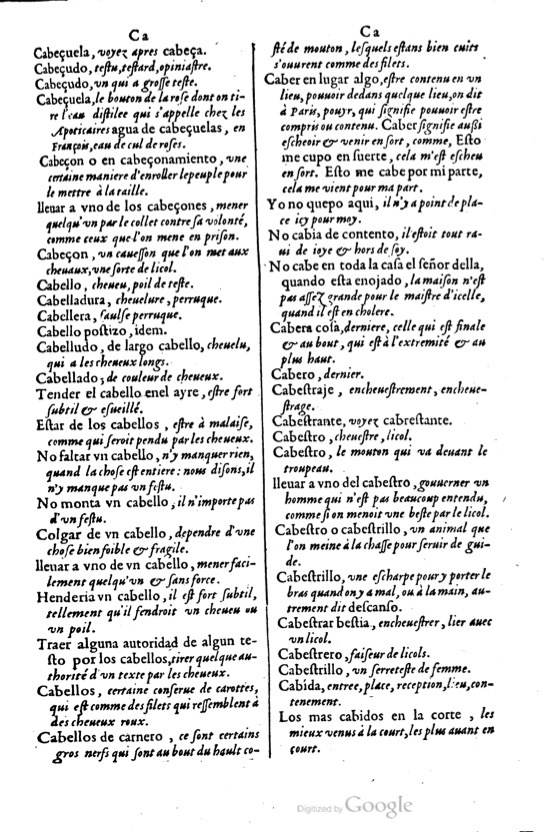 Ca
Cabeçuela, voyez apres cabeça.
Cabeçudo, testu, testard, opiniastre.
Cabeçudo, vn qui a grosse teste.
Cabeçuela, le bouton de la rose dont on ti-
re l'eau distilee qui s'appelle chez les
Apoticaires agua de cabeçuelas, en
François, eau de cul de roses.
Cabeçon o en cabeçonamiento, vne
certaine maniere d'enroller le peuple pour
le mettre à la taille.
lleuar a vno de los cabeçones, mener
quelqu'vn par le collet contre sa volonté,
comme ceux que l'on mene en prison.
Cabeçon, vn cauesson que l'on met aux
cheuaux, vne sorte de licol.
Cabello, cheueu, poil de teste.
Cabelladura, cheuelure, perruque.
Cabellera, faulse perruque.
Cabello postizo, idem.
Cabelludo, de largo cabello, cheuelu,
qui a les cheueux longs.
Cabellado, de couleur de cheueux.
Tender el cabello enel ayre, estre fort
subtil & esueillé.
Estar de los cabellos, estre à malaise,
comme qui seroit pendu par les cheueux.
No faltar vn cabello, n'y manquer rien,
quand la chose est entiere : nous disons, il
n'y manque pas vn festu.
No monta vn cabello, il n'importe pas
d'vn festu.
Colgar de vn cabello, dependre d'vne
chose bien foible & fragile.
lleuar a vno de vn cabello, mener faci-
lement quelqu'vn & sans force.
Henderia vn cabello, il est fort subtil,
tellement qu'il fendroit vn cheueu ou
vn poil.
Traer alguna autoridad de algun te-
sto por los cabellos, tirer quelque au-
thorité d'vn texte par les cheueux.
Cabellos, certaine conserue de carottes,
qui est comme des filets qui ressemblent à
des cheueux roux.
Cabellos de carnero, ce sont certains
gros nerfs qui sont au bout du hault co-
Ca
sté de mouton, lesquels estans bien cuits
s'ouurent comme des filets.
Caber en lugar algo, estre contenu en vn
lieu, pouuoir dedans quelque lieu, on dit
à Paris, pouyr, qui signifie pouuoir estre
compris ou contenu. Caber signifie aussi
escheoir & venir en sort, comme, Esto
me cupo en suerte, cela m'est escheu
en sort. Esto me cabe por mi parte,
cela me vient pour ma part.
Yo no quepo aqui, il n'y a point de pla-
ce icy pour moy.
No cabia de contento, il estoit tout ra-
ui de ioye & hors de soy.
No cabe en toda la casa el señor della,
quando esta enojado, la maison n'est
pas assez grande pour le maistre d'icelle,
quand il est en cholere.
Cabera cosa, derniere, celle qui est finale
& au bout, qui est à l'extremité & au
plus haut.
Cabero, dernier.
Cabestraje, encheuestrement, encheue-
strage.
Cabestrante, voyez cabrestante.
Cabestro, cheuestre, licol.
Cabestro, le mouton qui va deuant le
troupeau.
lleuar a vno del cabestro, gouuerner vn
homme qui n'est pas beaucoup entendu,
comme si on menoit vne beste par le licol.
Cabestro o cabestrillo, vn animal que
l'on meine à la chasse pour seruir de gui-
de.
Cabestrillo, vne escharpe pour y porter le
bras quand on y a mal, ou à la main, au-
trement dit descanso.
Cabestrar bestia, encheuestrer, lier auec
vn licol.
Cabestrero, faiseur de licols.
Cabestrillo, vn serreteste de femme.
Cabida, entree, place, reception, lieu, con-
tenement.
Los mas cabidos en la corte, les
mieux venus à la court, les plus auant en
court.
Digitized by Google